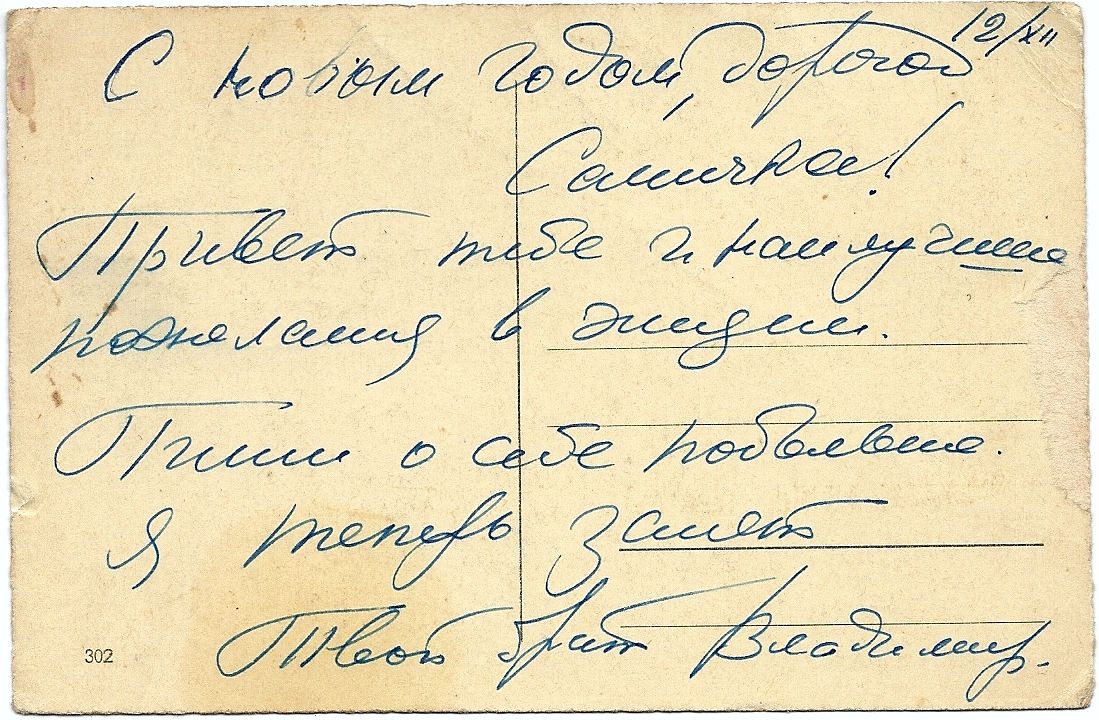 12/XII
С новым годом, дорогой
Самичка!
Привет тебе и наилучшие
пожелания в жизни.
Пиши о себе побольше.
Я теперь занят
Твой брат Владимир.
302